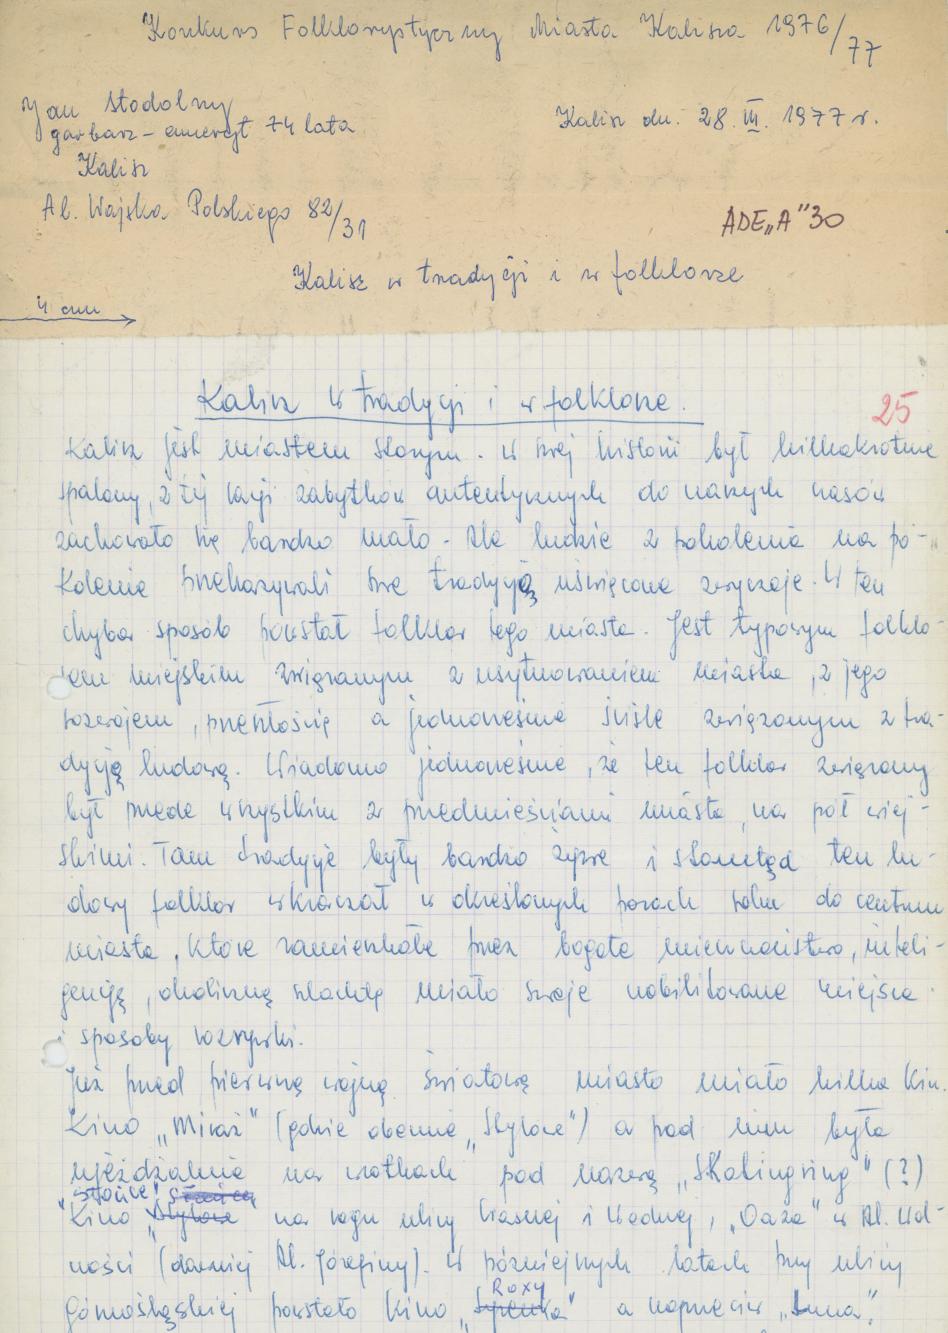 Konkurs Folklorystyczny Miasta Kalisza 1976/77
Jan Stodolny
garbarz - emeryt 74 lata
Kalisz dn. 28. III. 1977 r.
Kalisz
Al. Wojska Polskiego 82/31
ADE„A"30
Kalisz w tradycji i w folklorze
4 cm
Kalisz w tradycji i w folklorze.
25
Kalisz jest miastem starym. W swej historii był kilkakrotnie
spalony, z tej racji zabytków autentycznych do naszych czasów
zachowało się bardzo mało. Ale ludzie z pokolenia na po-
kolenie przekazywali swe tradycją uświęcone zwyczaje. W ten
chyba sposób powstał folklor tego miasta. Jest typowym folklo-
rem miejskim związanym z usytuowaniem miasta, z jego
rozwojem, przeszłością a jednocześnie ściśle związanym z tra-
dycją ludową. Wiadomo jednocześnie, że ten folklor związany
był przede wszystkim z przedmieściami miasta, na pół wiej-
skimi. Tam tradycje były bardzo żywe i stamtąd ten lu-
dowy folklor wkraczał w określonych porach roku do centrum
miasta, które zamieszkałe przez bogate mieszczaństwo, inteli-
gencję, okoliczną szlachtę miało swoje nobilitowane miejsca
i sposoby rozrywki.
Już przed pierwszą wojną światową miasto miało kilka kin.
Kino „Miraż" (gdzie obecnie „Stylowe") a pod nim była
ujeżdżalnia na wrotkach pod nazwą „Skatingring" (?)
"Słońce"
Kino „Stylowe na rogu ulicy Ciasnej i Wodnej, „Oaza" w Al. Wol-
ności (dawniej Al. Józefiny). W późniejnych latach przy ulicy
Roxy
Górnośląskiej powstało kino „Syrena" a naprzeciw „Luna".